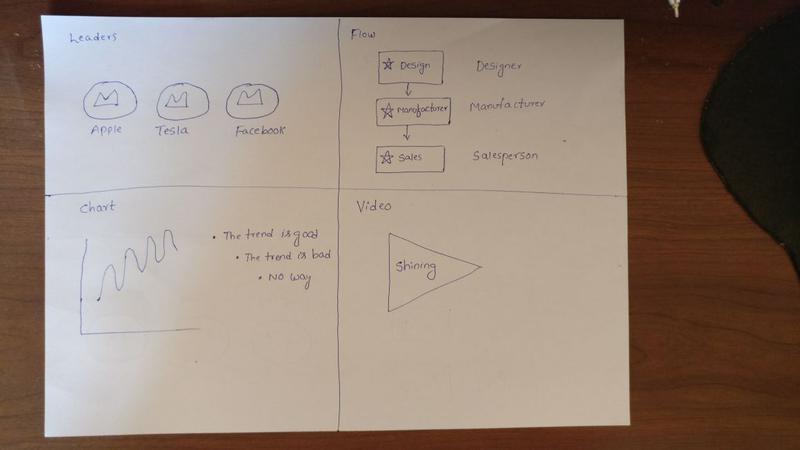 Leaders
Apple Tesla Facebook
Flow
Design Designer
Manufacturer Manufacturer
Sales Salesperson
Chart
• The trend is good
• The trend is bad
• No way
Video
Shining